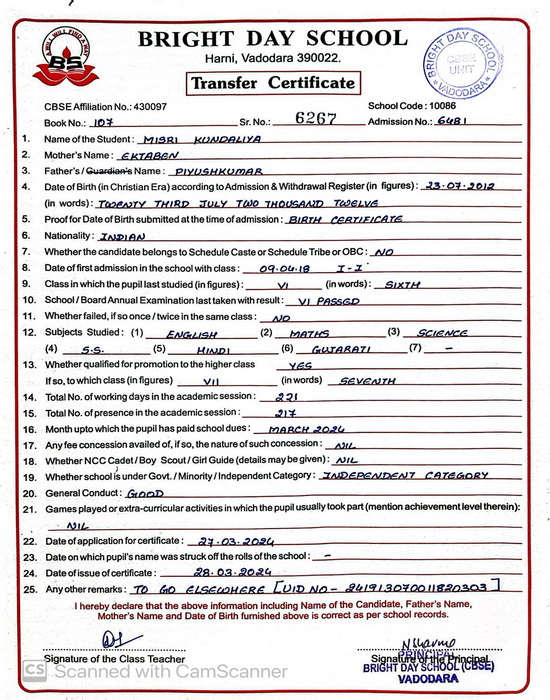 A WILL WILL FIND A WAY
BS
BRIGHT DAY SCHOOL
Harni, Vadodara 390022.
Transfer Certificate
BRIGHT DAY SCHOOL
CBSE
UNIT
VADODARA
CBSE Affiliation No.: 430097 School Code : 10086
Book No.: 107 Sr. No.: 6267 Admission No.: 6481
1. Name of the Student : MISRI KUNDALIYA
2. Mother's Name : EKTABEN
3. Father's / Guardian's Name : PIYUSHKUMAR
4. Date of Birth (in Christian Era) according to Admission & Withdrawal Register (in figures) : 23-07-2012
(in words) : TWENTY THIRD JULY TWO THOUSAND TWELVE
5. Proof for Date of Birth submitted at the time of admission : BIRTH CERTIFICATE
6. Nationality : INDIAN
7. Whether the candidate belongs to Schedule Caste or Schedule Tribe or OBC : NO
8. Date of first admission in the school with class : 09.04.18 I-I
9. Class in which the pupil last studied (in figures) : VI (in words) : SIXTH
10. School / Board Annual Examination last taken with result : VI PASSED
11. Whether failed, if so once / twice in the same class : NO
12. Subjects Studied : (1) ENGLISH (2) MATHS (3) SCIENCE
(4) S.S. (5) HINDI (6) GUJARATI (7) -
13. Whether qualified for promotion to the higher class YES
If so, to which class (in figures) VII (in words) SEVENTH
14. Total No. of working days in the academic session : 221
15. Total No. of presence in the academic session : 217
16. Month upto which the pupil has paid school dues : MARCH 2024
17. Any fee concession availed of, if so, the nature of such concession : NIL
18. Whether NCC Cadet / Boy Scout / Girl Guide (details may be given) : NIL
19. Whether school is under Govt. / Minority / Independent Category : INDEPENDENT CATEGORY
20. General Conduct : GOOD
21. Games played or extra-curricular activities in which the pupil usually took part (mention achievement level therein) :
NIL
22. Date of application for certificate : 27-03-2024
23. Date on which pupil's name was struck off the rolls of the school : -
24. Date of issue of certificate : 28-03-2024
25. Any other remarks : TO GO ELSEWHERE [UID NO - 241913070011820303]
I hereby declare that the above information including Name of the Candidate, Father's Name,
Mother's Name and Date of Birth furnished above is correct as per school records.
Signature of the Class Teacher Signature of the Principal
PRINCIPAL
BRIGHT DAY SCHOOL (CBSE)
VADODARA
CS Scanned with CamScanner